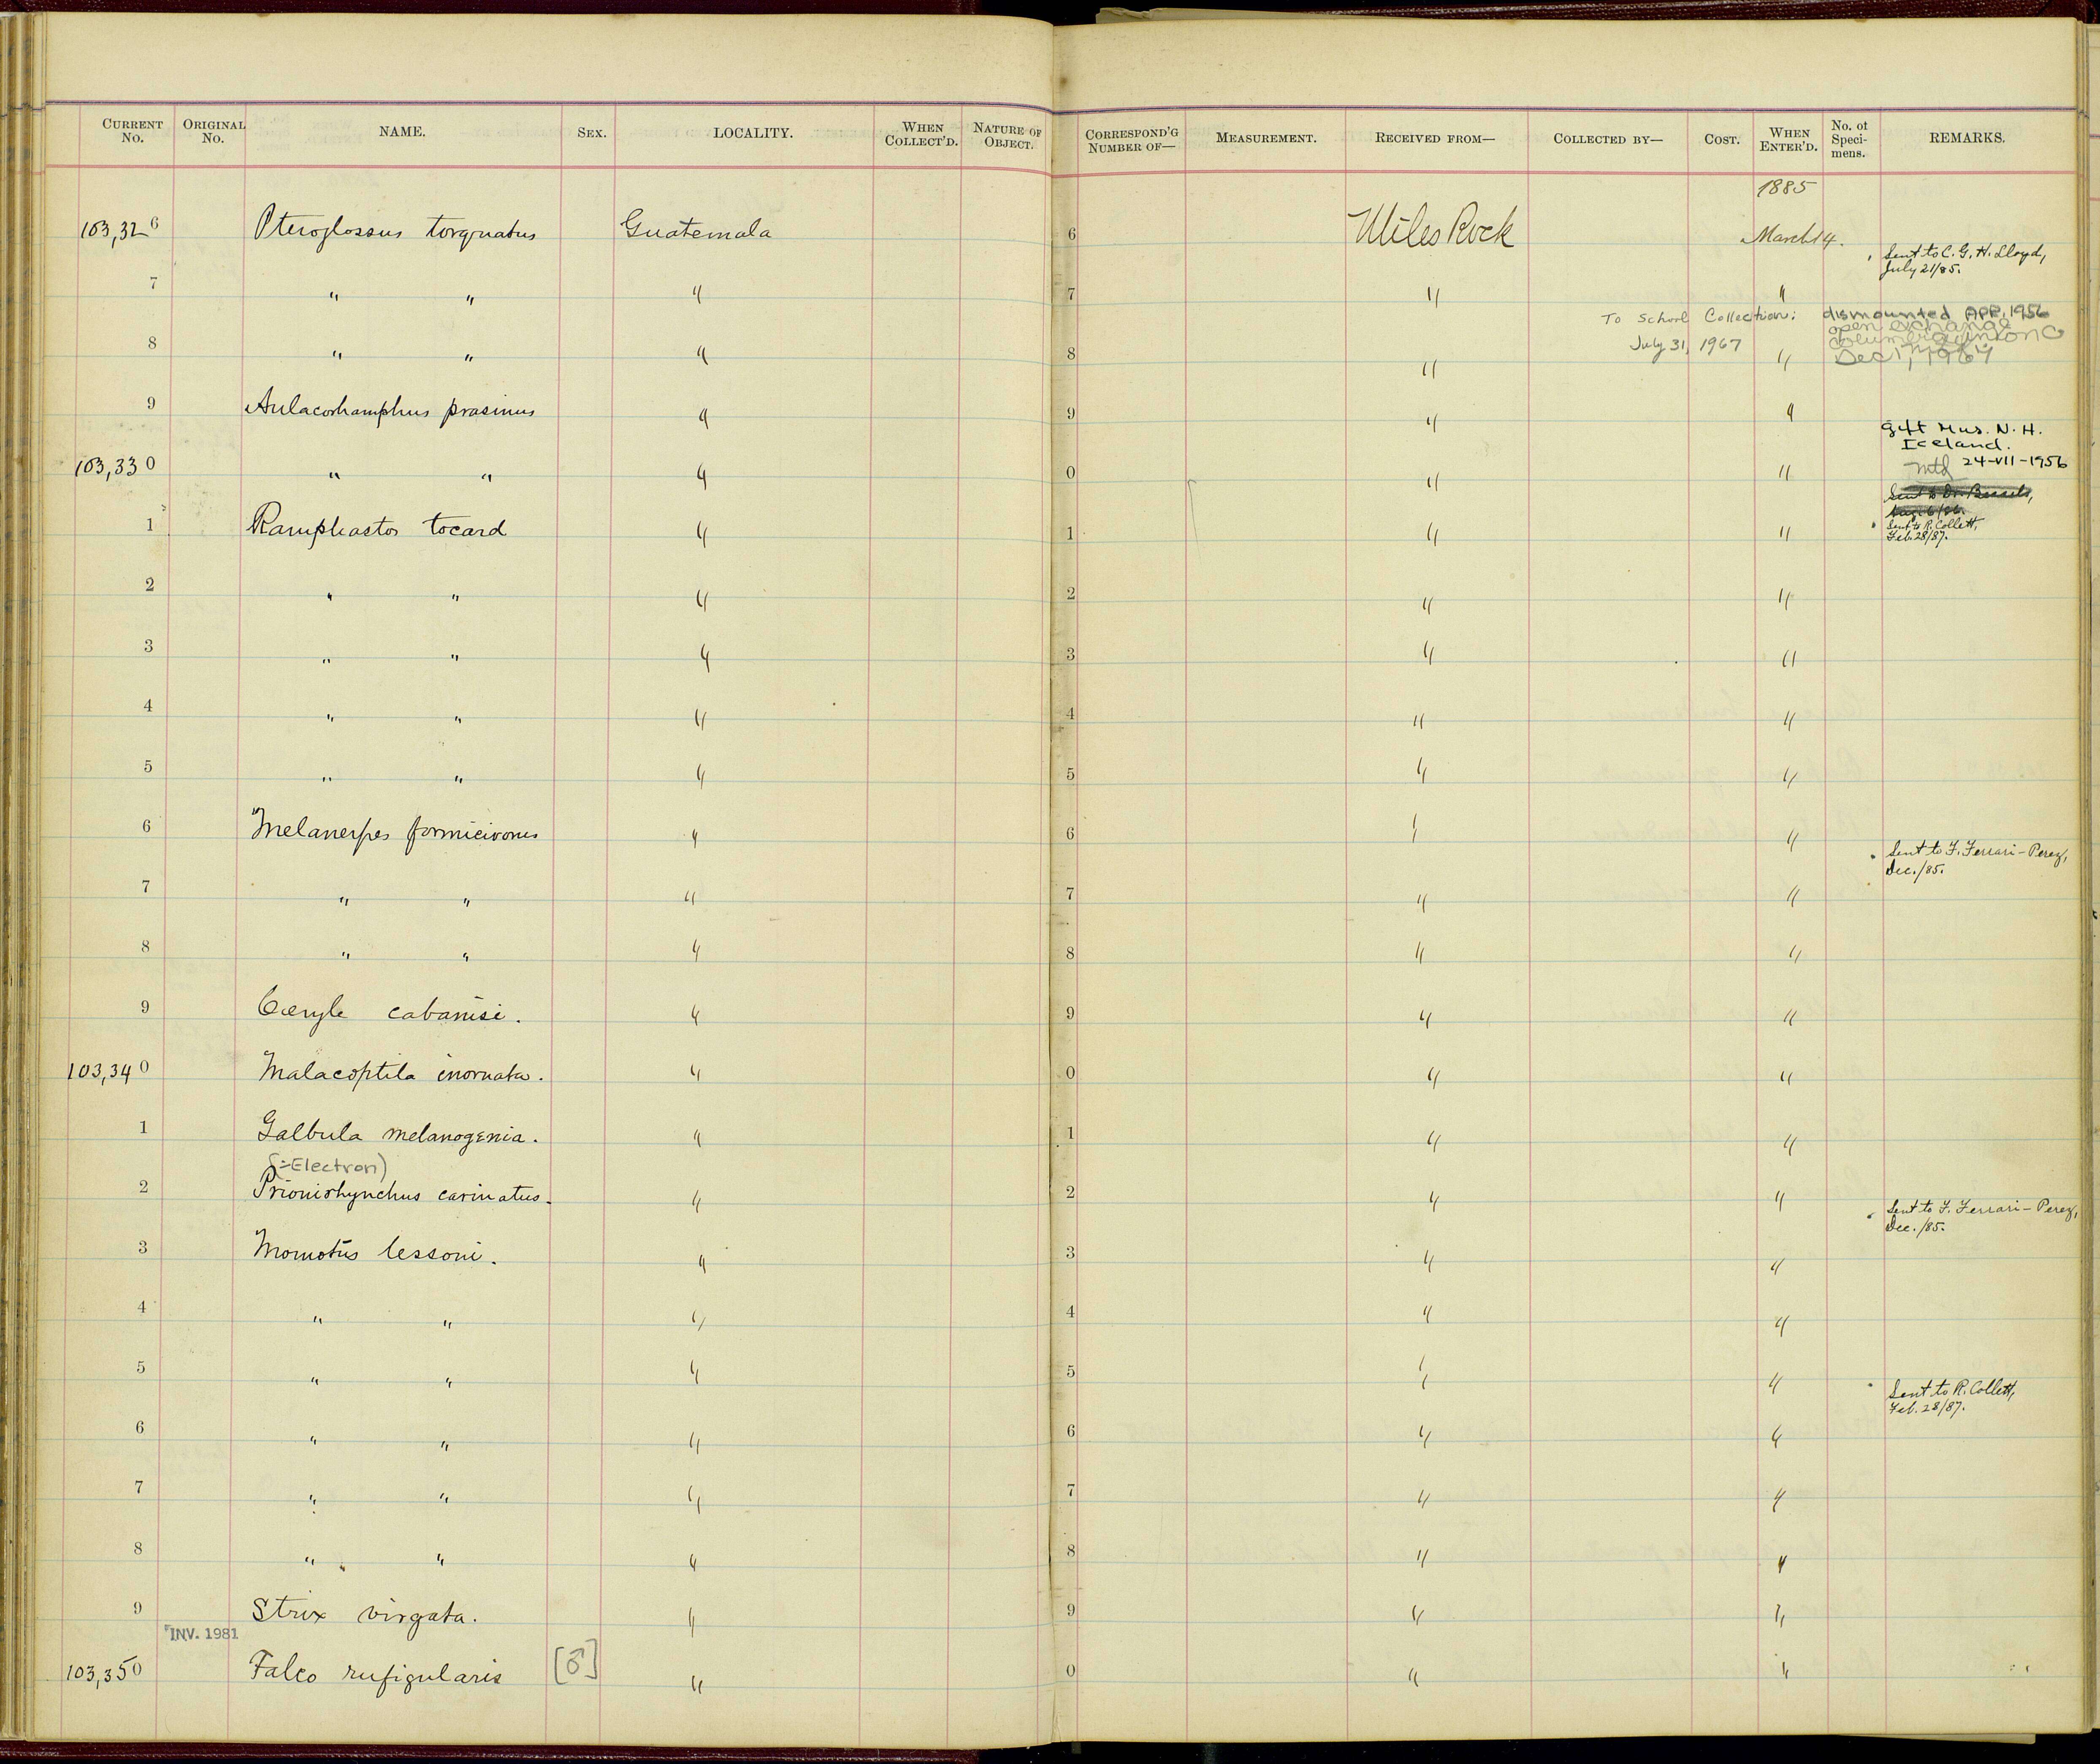 CURRENT NO. ORIGINAL NO. NAME. SEX. LOCALITY. WHEN COLLECT'D. NATURE OF OBJECT. CORRESPOND'G NUMBER OF— MEASUREMENT. RECEIVED FROM— COLLECTED BY— COST. WHEN ENTER'D. No. of Speci-mens. REMARKS.
1885
103,326 Pteroglossus torquatus Guatemala 6 Miles Rock March 14.
Sent to C. G. H. Lloyd,
July 21/85.
7 " " " 7 " "
To School Collection: dismounted APR, 1956
July 31, 1967
open exchange
Columbia Union C
Dec 1, 1967
8 " " " 8 " "
9 Aulacorhamphus prasinus " 9 " "
gift Mus. N. H.
Iceland.
mtd 24-VII-1956
103,330 " " " 0 " "
Sent to Dr. Bessels,
Aug. 6/86.
1 Ramphastos tocard " 1 " "
Sent to R. Collett,
Feb. 28/87.
2 " " " 2 " "
3 " " " 3 " "
4 " " " 4 " "
5 " " " 5 " "
6 Melanerpes formicivorus " 6 " "
Sent to F. Ferrari-Perez,
Dec./85.
7 " " " 7 " "
8 " " " 8 " "
9 Ceryle cabanisi. " 9 " "
103,340 Malacoptila inornata. " 0 " "
1 Galbula melanogenia. " 1 " "
(=Electron)
2 Prionirhynchus carinatus. " 2 " "
Sent to F. Ferrari-Perez,
Dec./85.
3 Momotus lessoni. " 3 " "
4 " " " 4 " "
5 " " " 5 " "
Sent to R. Collett,
Feb. 28/87.
6 " " " 6 " "
7 " " " 7 " "
8 " " " 8 " "
9 Strix virgata. " 9 " "
INV. 1981
103,350 Falco rufigularis [♂] " 0 " "